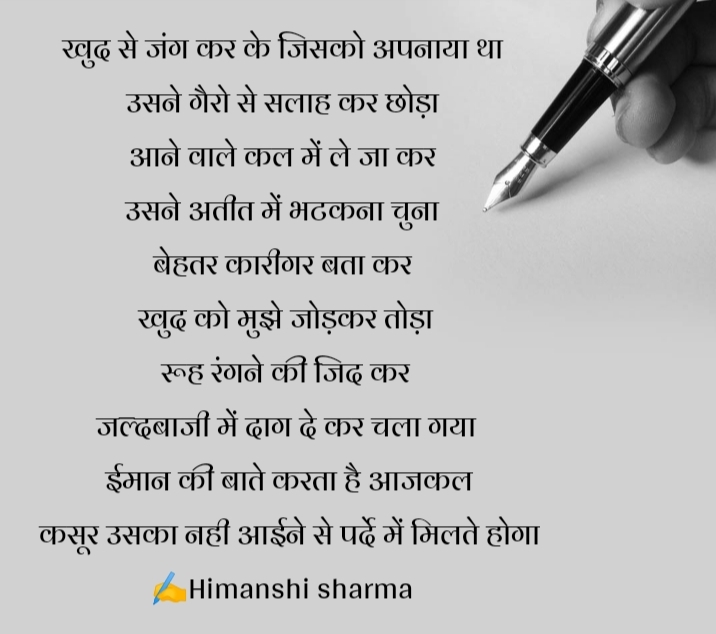 खुद से जंग कर के जिसको अपनाया था
उसने गैरो से सलाह कर छोड़ा
आने वाले कल में ले जा कर
उसने अतीत में भटकना चुना
बेहतर कारीगर बता कर
खुद को मुझे जोड़कर तोड़ा
रूह रंगने की जिद कर
जल्दबाजी में दाग दे कर चला गया
ईमान की बाते करता है आजकल
कसूर उसका नही आईने से पर्दे में मिलते होगा
✍️Himanshi sharma